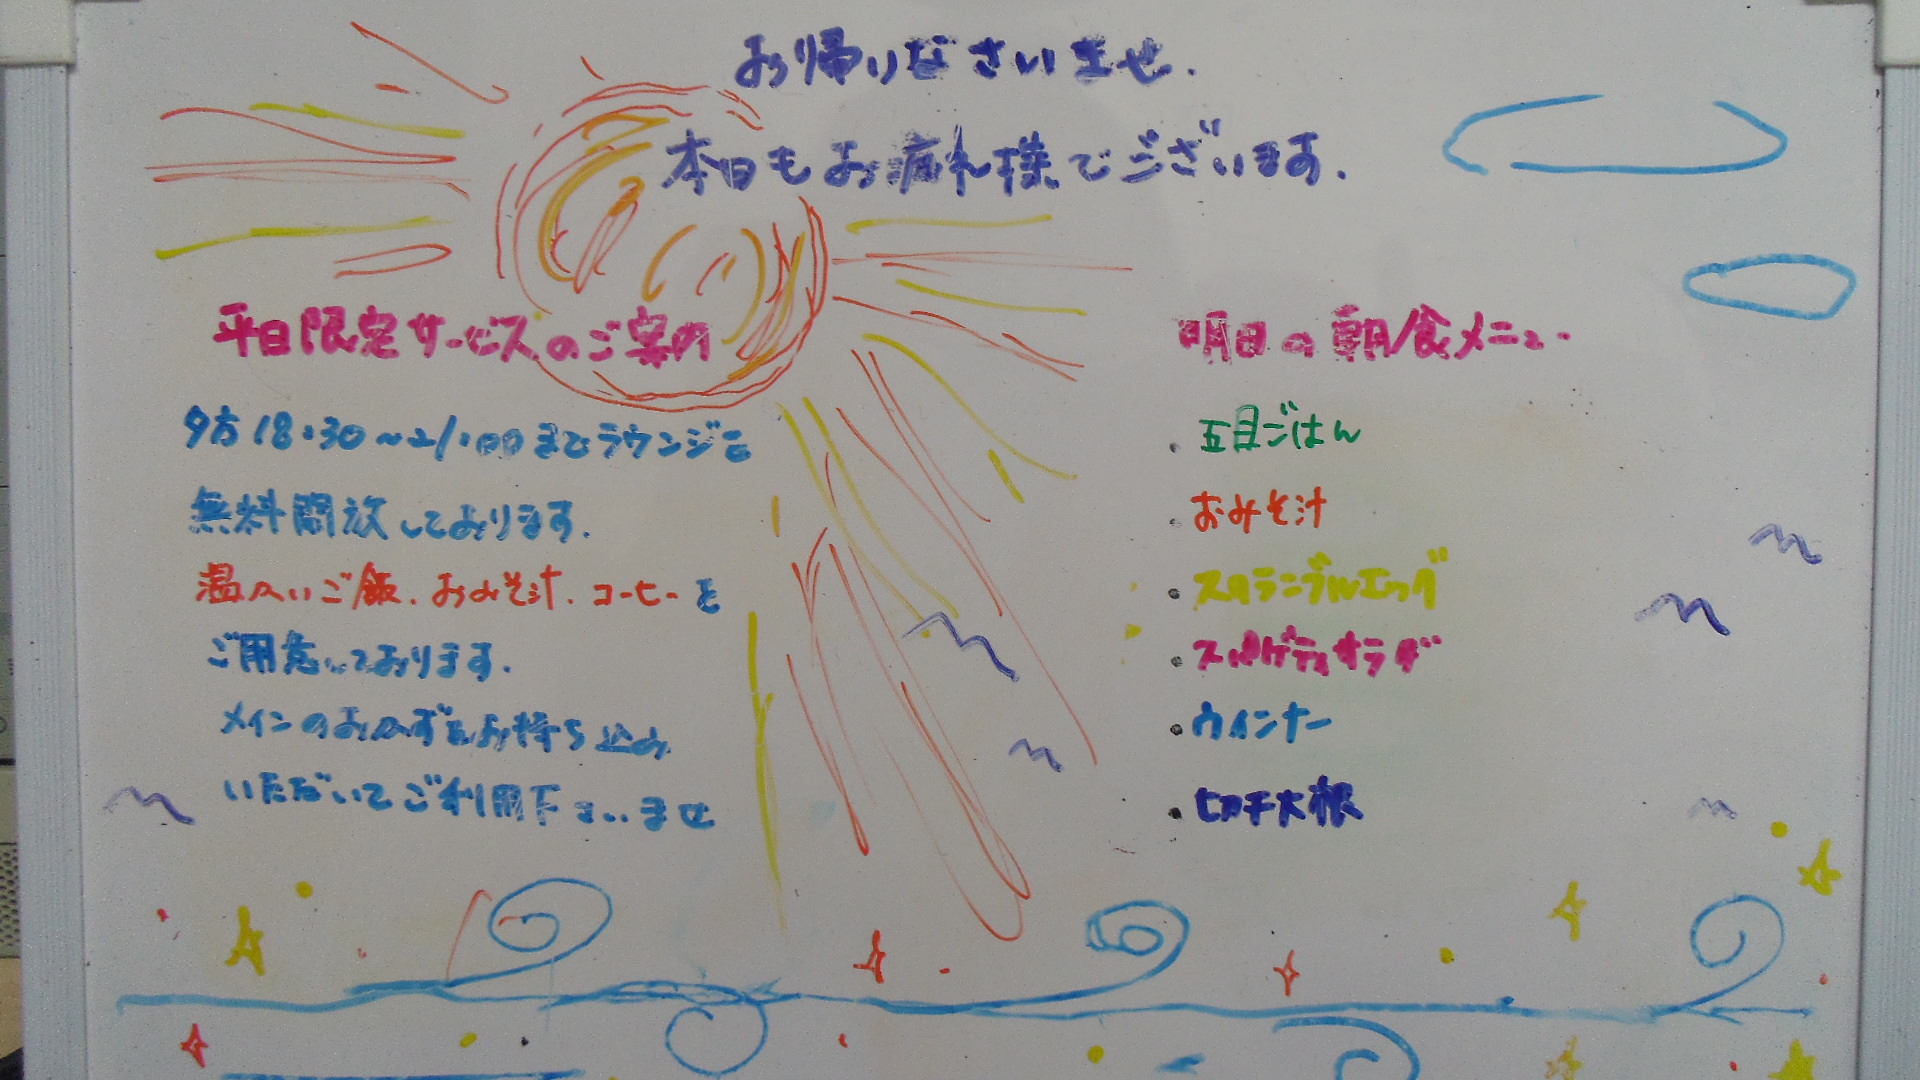 お帰りなさいませ.
本日もお疲れ様でございます.
平日限定サービスのご案内
夕方18:30~21:00までラウンジを
無料開放しております.
温かいご飯.おみそ汁.コーヒーを
ご用意しております.
メインのおかずをお持ち込み
いただいてご利用下さいませ
明日の朝食メニュー
・五目ごはん
・おみそ汁
・スクランブルエッグ
・スパゲティサラダ
・ウインナー
・切干大根